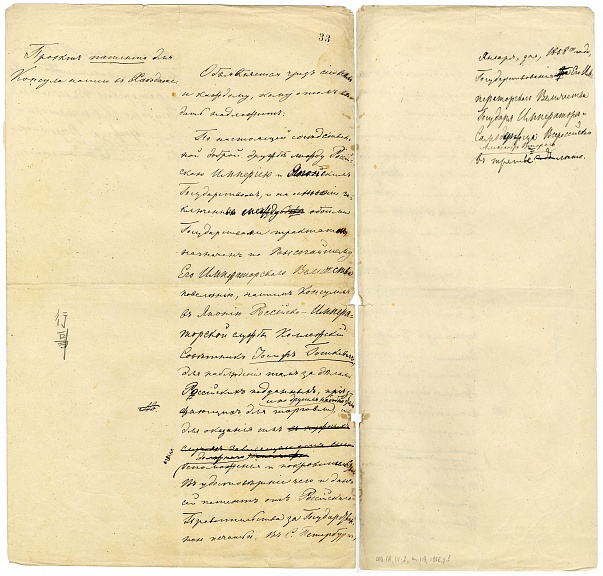 33
Проектъ патента для
Консула нашего въ Хакодате.
Объявляется чрезъ сіе всѣмъ
и каждому, кому о томъ вѣ-
дать надлежитъ.
По настоящей сосѣдствен-
ной доброй дружбѣ между Россій-
скою Имперіею и Японскимъ
Государствомъ, и на основаніи за-
ключенныхъ между обоими
Государствами трактатовъ
назначенъ по Высочайшему
Его Императорскаго Величества
повелѣнію, нашимъ Консуломъ
въ Японіи Россійско-Импера-
торской службы Коллежскій
Совѣтникъ Іосифъ Гошкевичъ,
для наблюденія тамъ за дѣлами
Россійскихъ подданныхъ, пріѣз-
жающихъ для торговли, и
для оказанія имъ
вспоможенія и покровительства.
Въ удостовѣреніе чего и данъ
сей патентъ отъ Россійскаго
Правительства за Государствен-
ною печатью. Въ С. Петербургѣ
行事
Января, дня, 1858го года,
Государствованія Его Им-
ператорскаго Величества
Государя Императора
Самодержца Всероссійскаго
Александра Втораго
въ третье лѣто.